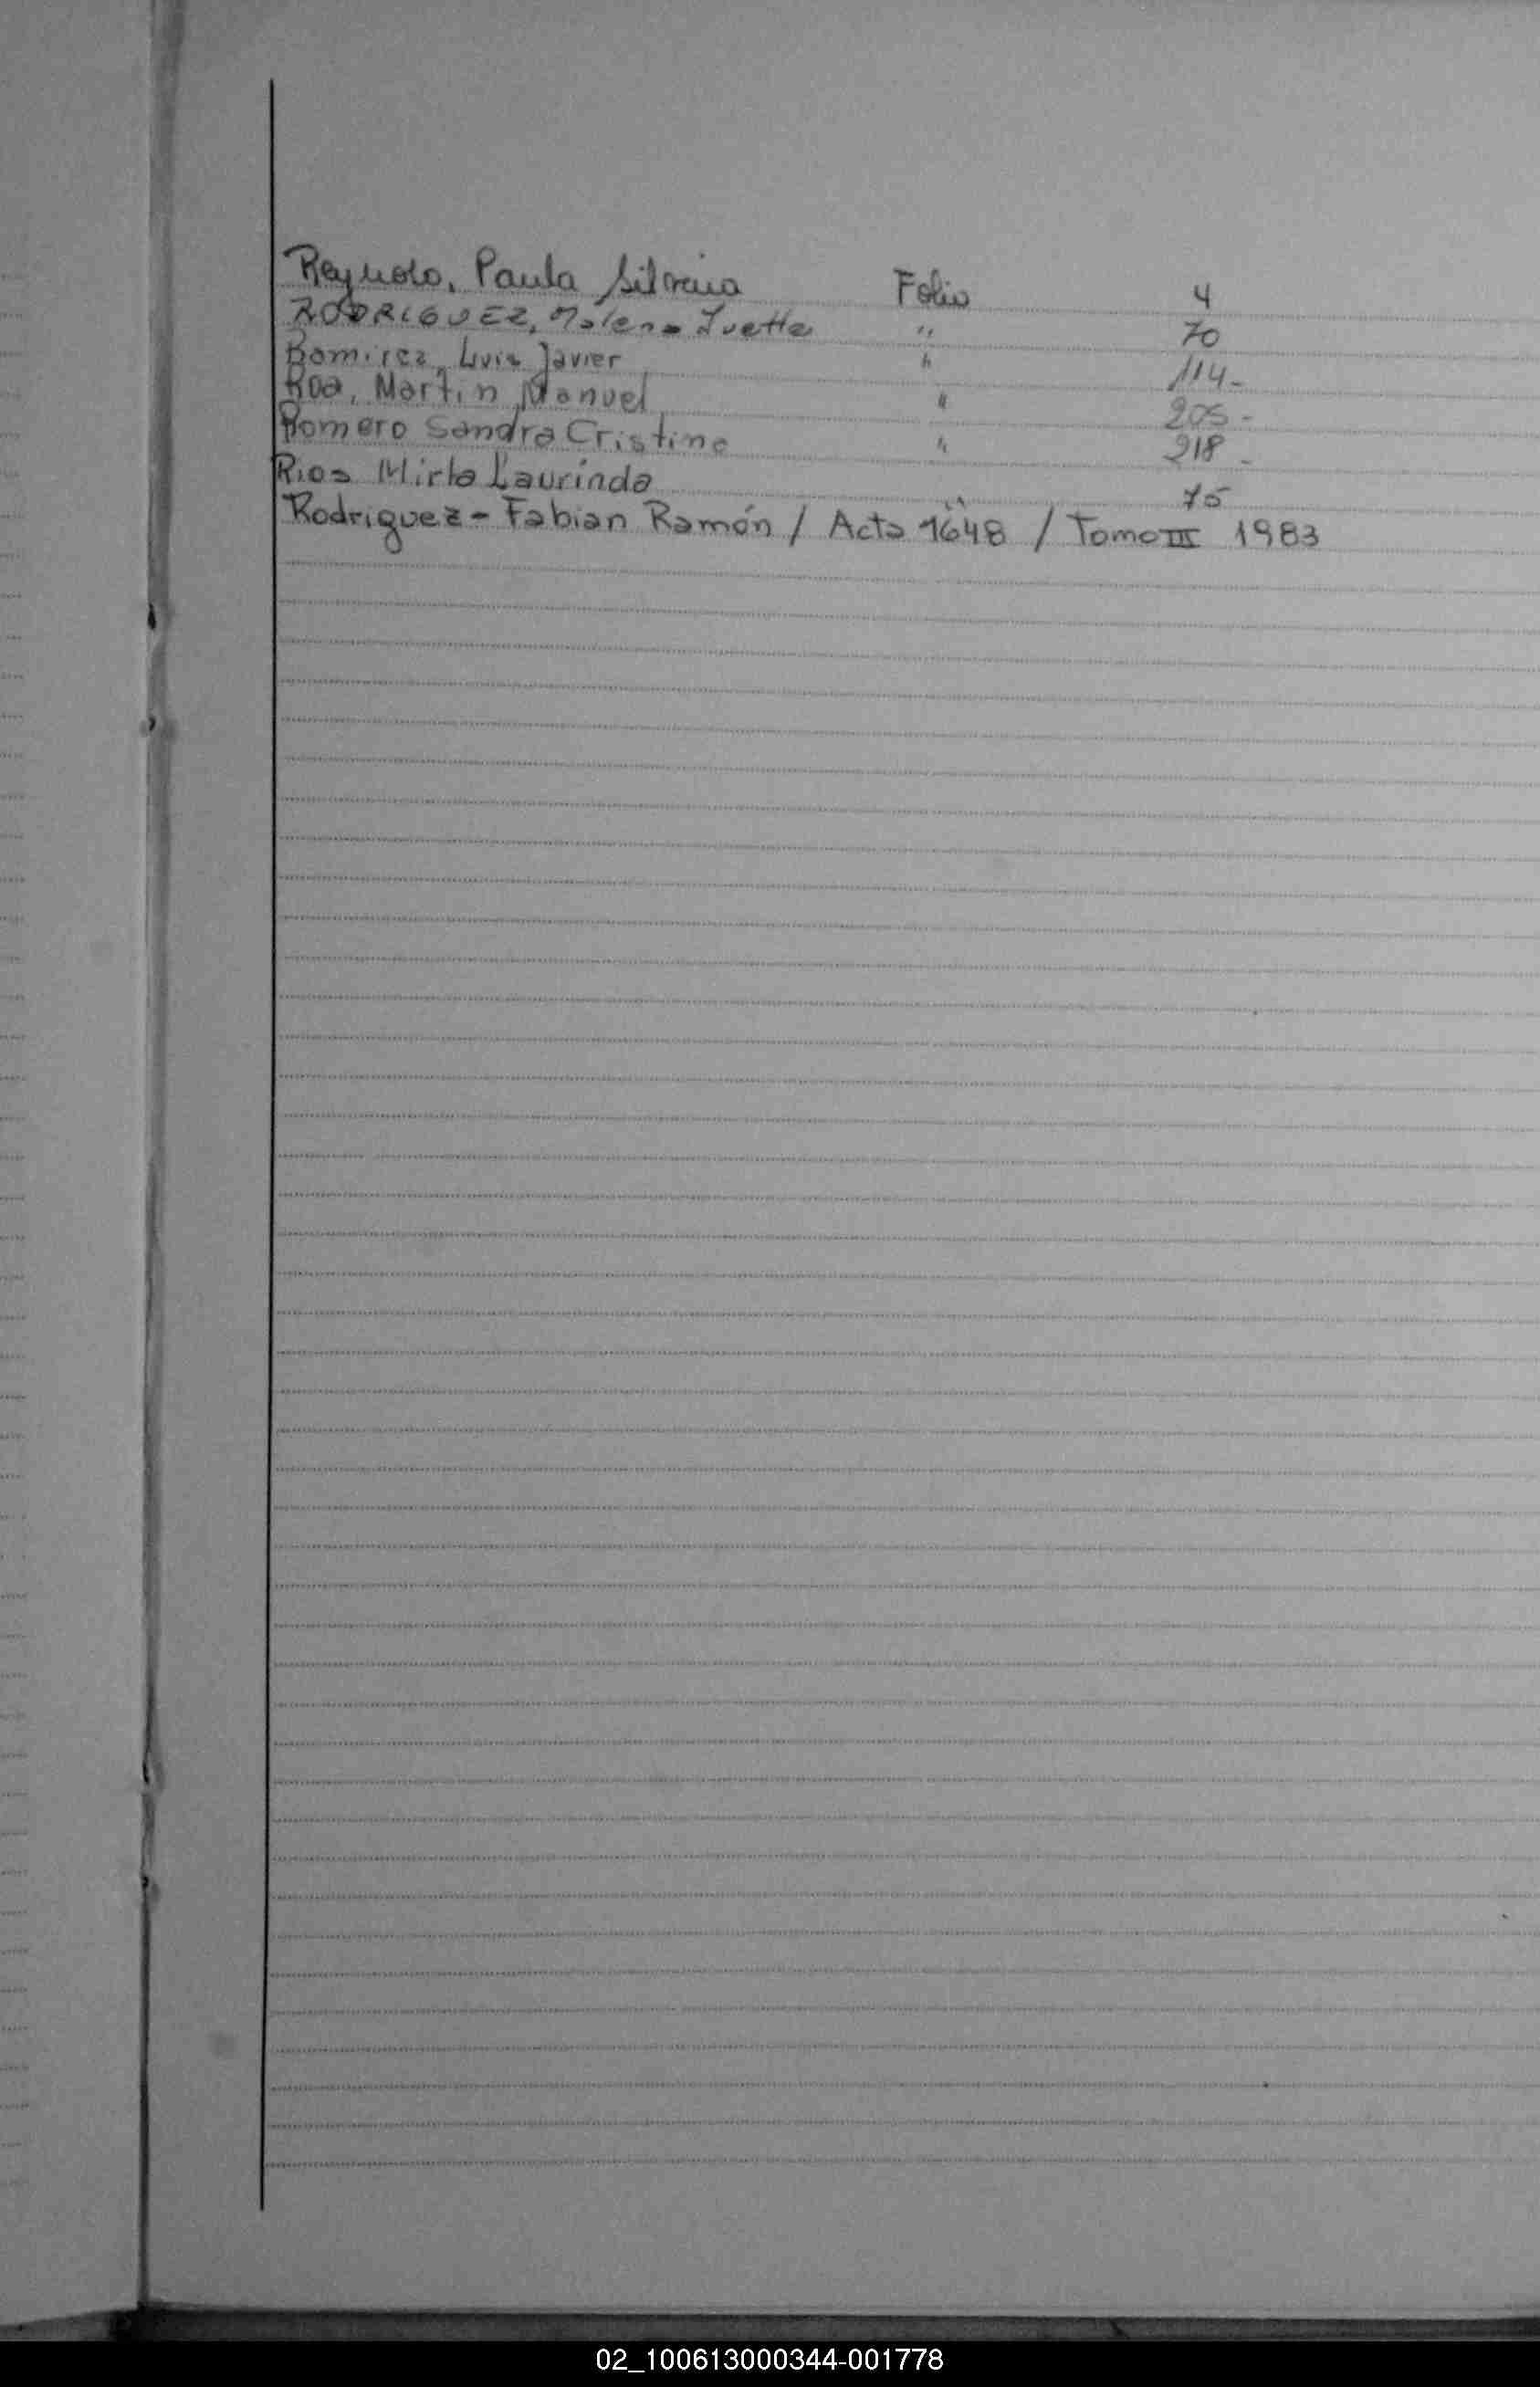 Reynoso, Paula Silvana Folio 4
RODRIGUEZ, Malena Ivette " 70
Ramirez, Luis Javier " 114-
Roa, Martin Manuel " 205-
Romero Sandra Cristina " 218-
Rios Mirta Laurinda " 75
Rodriguez - Fabian Ramón / Acta 1648 / Tomo III 1983
02_100613000344-001778